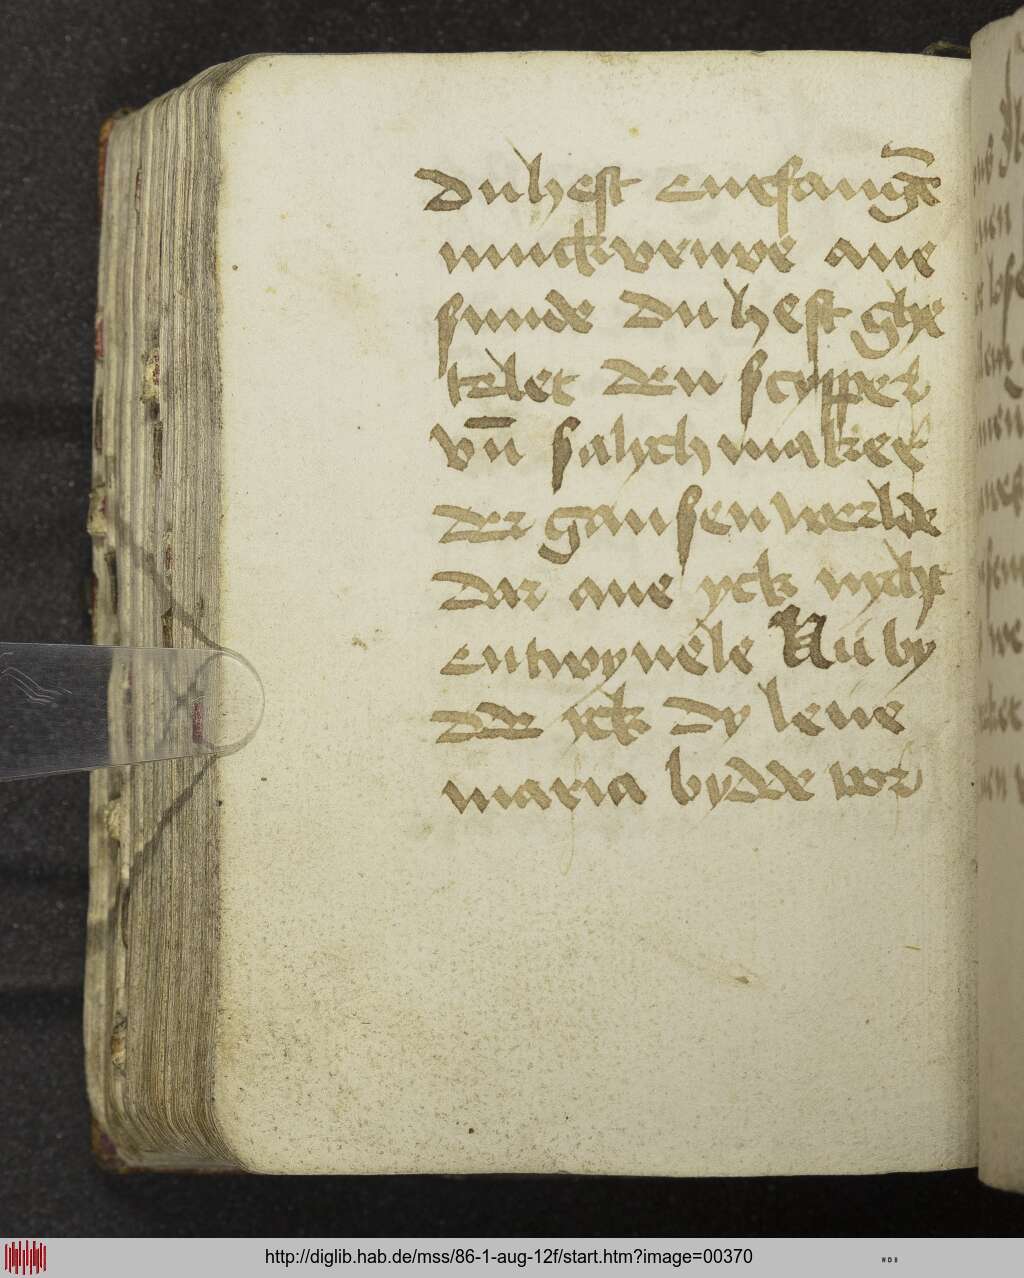 du hest entfangē
iunckvruwe ane
sunde du hest ghe
telet den scypper
vn̄ salychmaker
der gansen werlde
dar ane yck nycht
entwyuele Nu by
dde yck dy leue
maria bydde vor
http://diglib.hab.de/mss/86-1-aug-12f/start.htm?image=00370